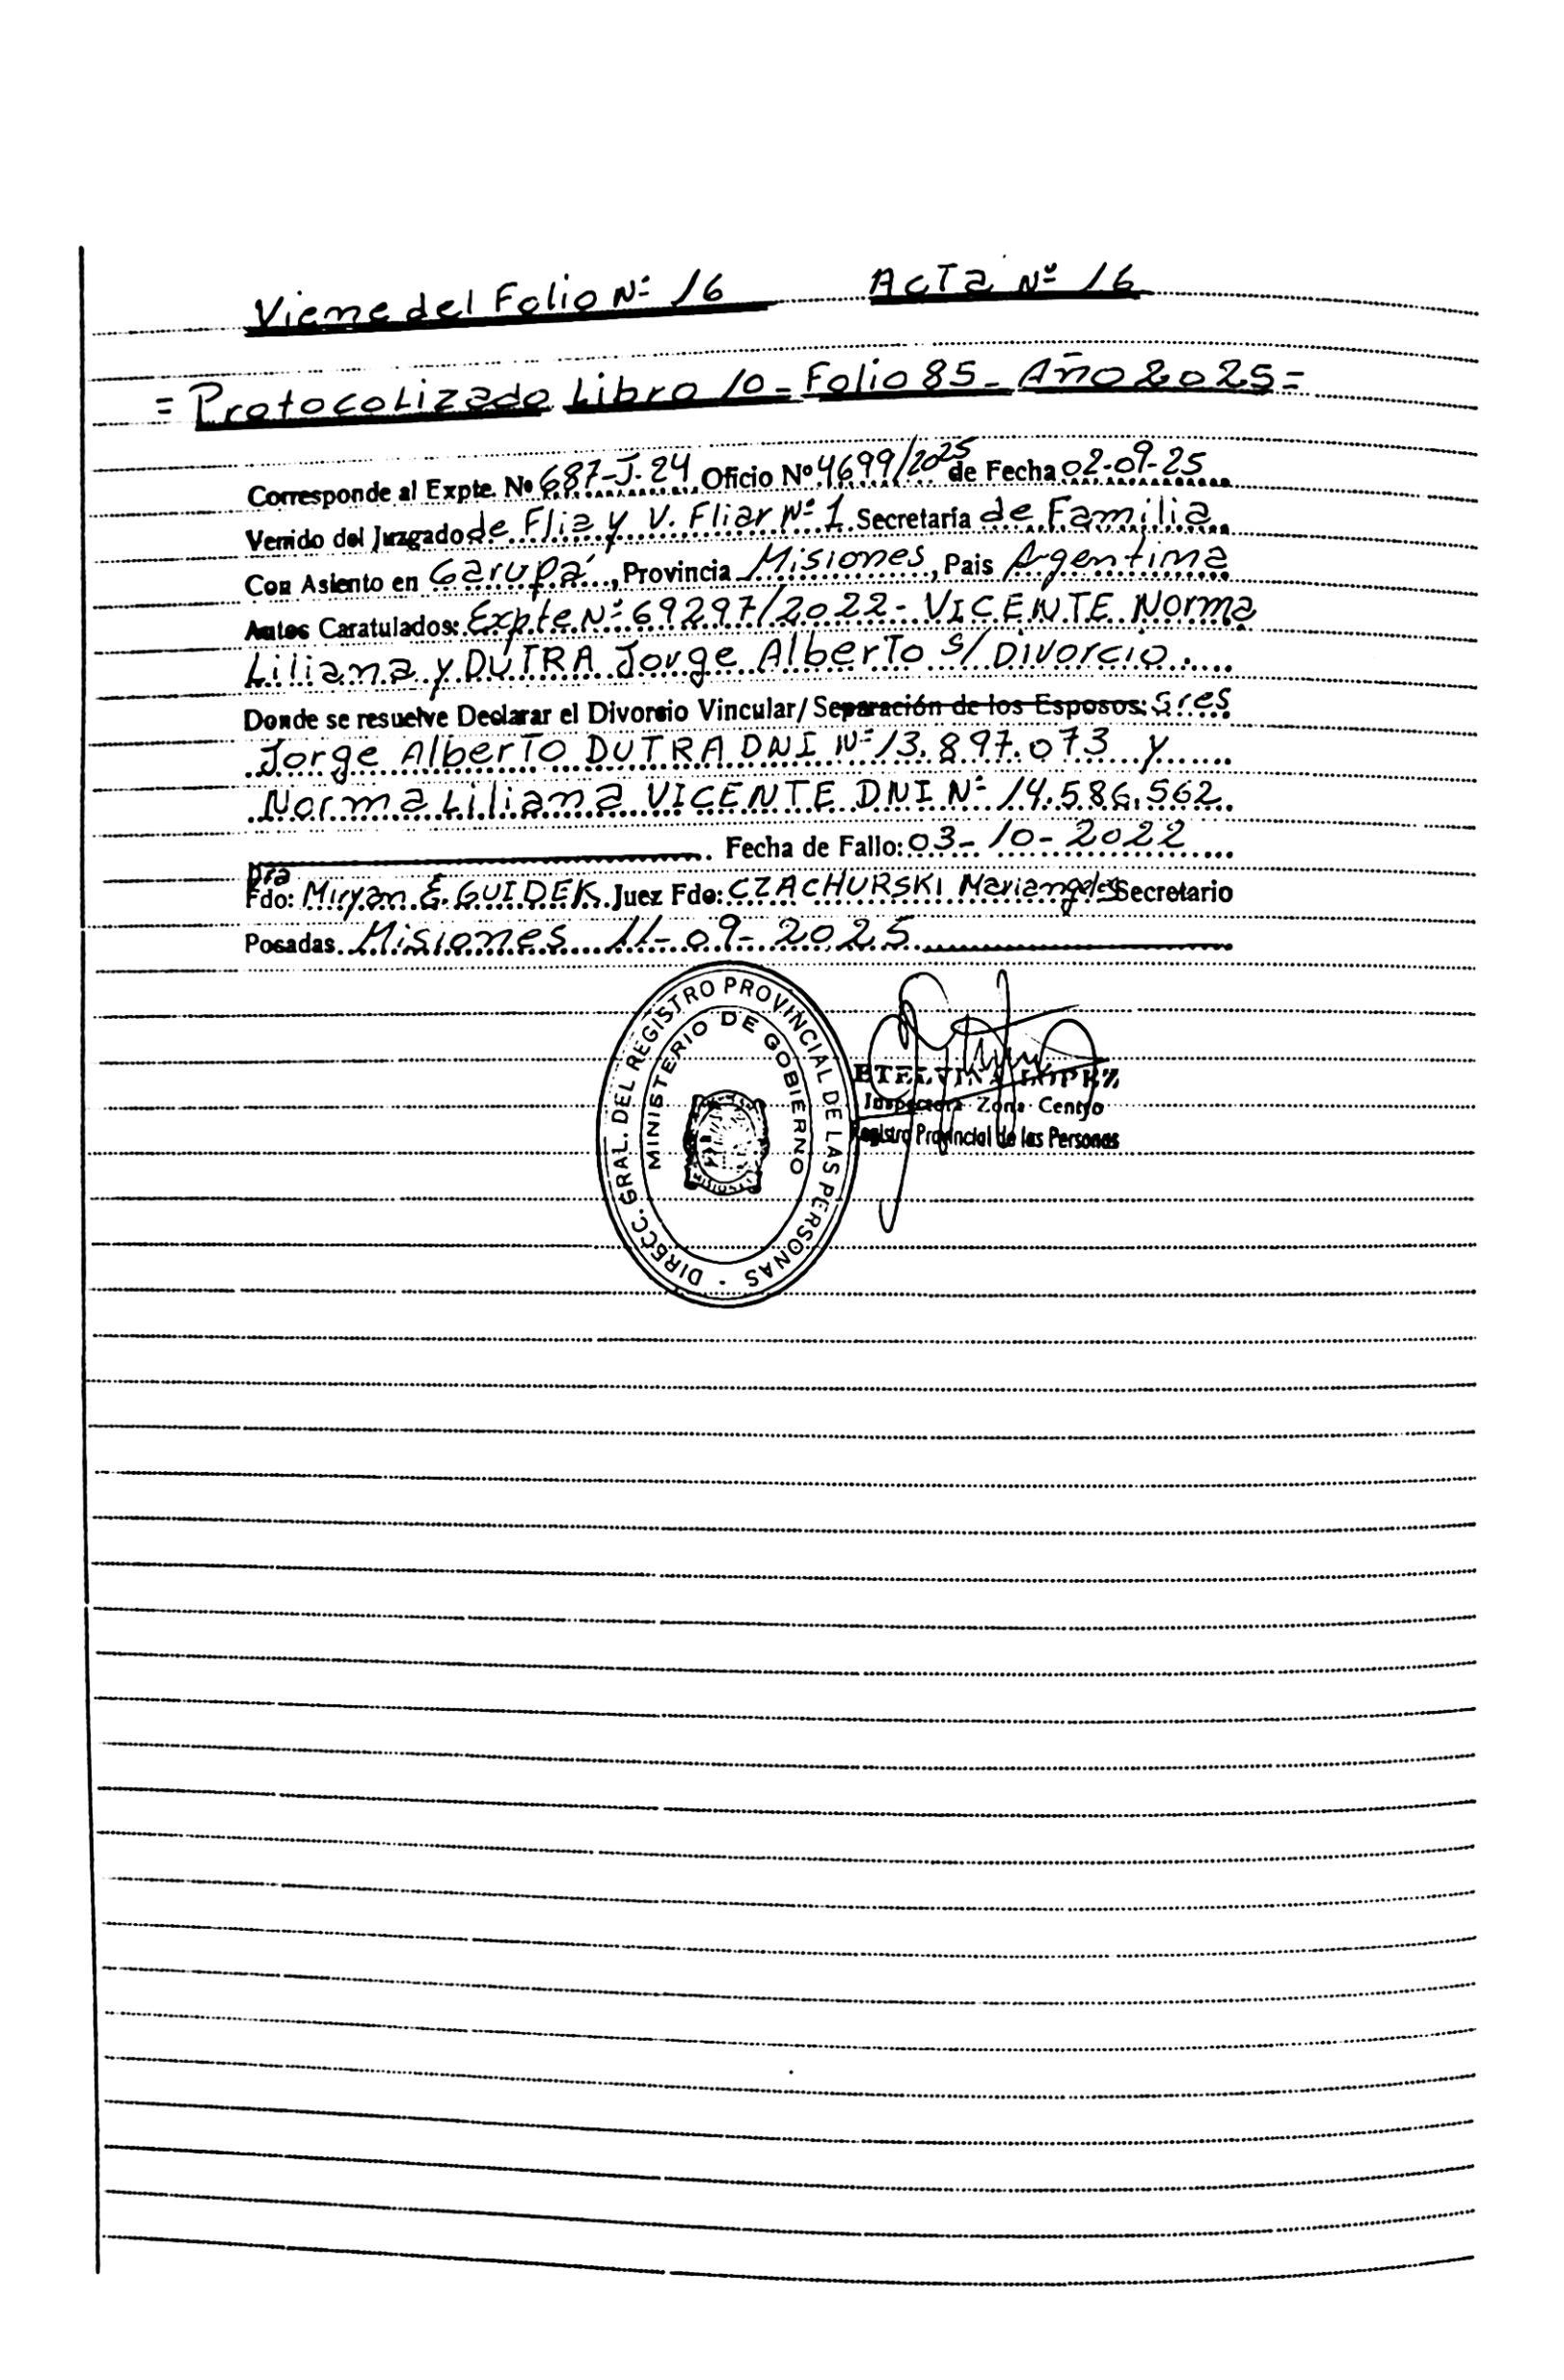 Viene del Folio Nº 16 Acta Nº 16
= Protocolizado Libro 10 - Folio 85 - Año 2025 =
Corresponde al Expte. Nº 687-J-24 Oficio Nº 4699/2025 de Fecha 02-09-25
Venido del Juzgado de Flia y V. Fliar Nº 1 Secretaría de Familia
Con Asiento en Garupá, Provincia Misiones, Pais Argentina
Autos Caratulados: Expte Nº 69297/2022 - VICENTE Norma
Liliana y DUTRA Jorge Alberto S/ Divorcio
Donde se resuelve Declarar el Divorcio Vincular/ Separación de los Esposos: Sres
Jorge Alberto DUTRA DNI Nº 13.897.073 y
Norma Liliana VICENTE DNI Nº 14.586.562
Fecha de Fallo: 03-10-2022
Dra
Fdo: Miryan E. GUIDEK Juez Fdo: CZACHURSKI Mariangeles Secretario
Posadas Misiones 11-09-2025
DIRECC. GRAL. DEL REGISTRO PROVINCIAL DE LAS PERSONAS
MINISTERIO DE GOBIERNO
ETELVINA LOPEZ
Inspectora Zona Centro
Registro Provincial de las Personas